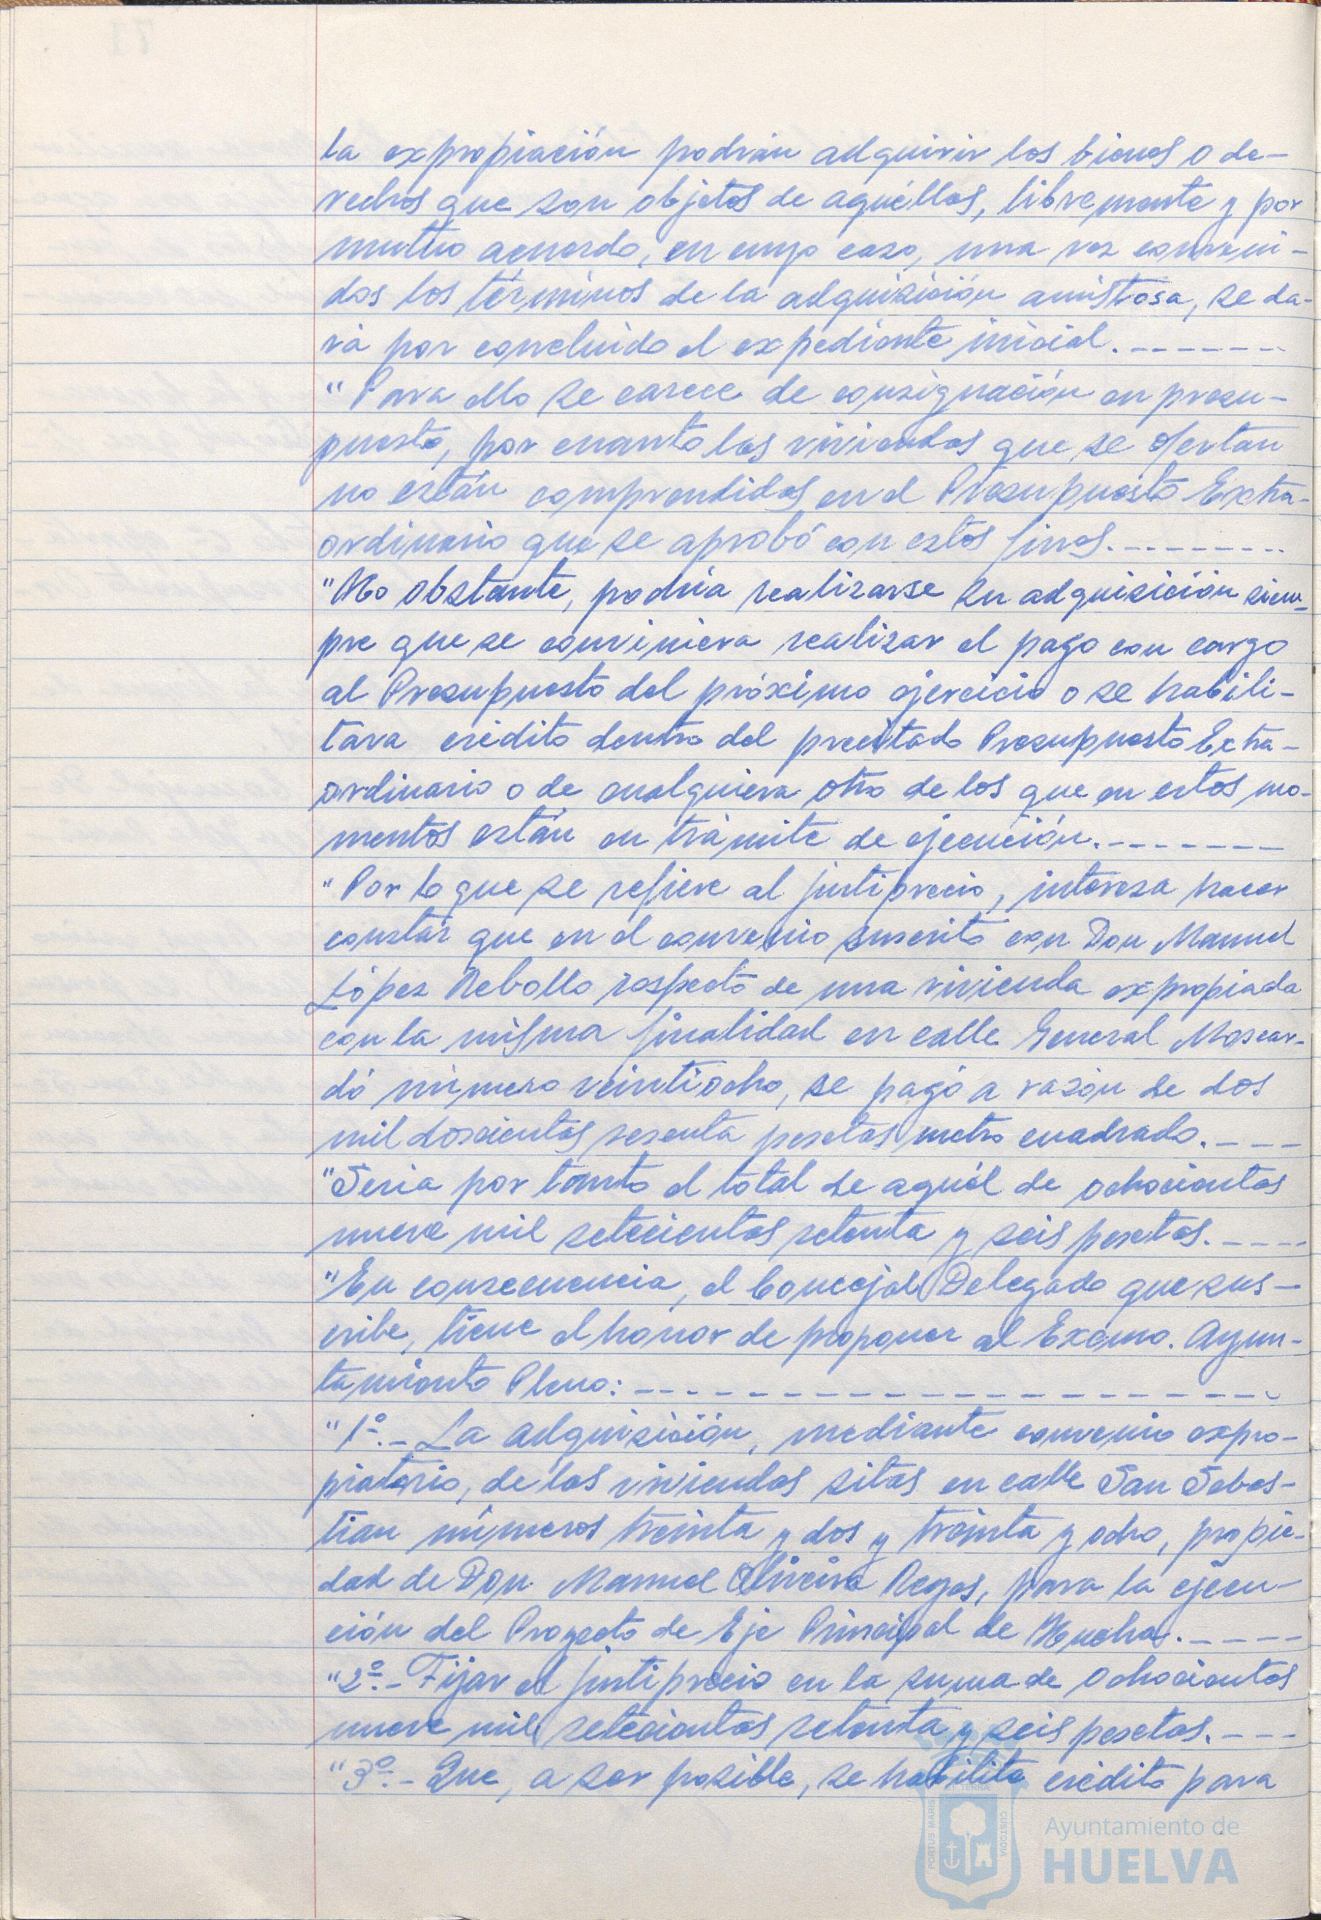 la expropiación podrán adquirir los bienes o de-
rechos que son objetos de aquéllas, libremente y por
mutuo acuerdo, en cuyo caso, una vez conveni-
dos los términos de la adquisición amistosa, se da-
rá por concluido el expediente inicial.-------
"Para ello se carece de consignación en presu-
puesto, por cuanto las viviendas que se ofertan
no están comprendidas en el Presupuesto Extra-
ordinario que se aprobó con estos fines.---------
"No obstante, podría realizarse su adquisición siem-
pre que se conviniera realizar el pago con cargo
al Presupuesto del próximo ejercicio o se habili-
tara crédito dentro del precitado Presupuesto Extra-
ordinario o de cualquiera otro de los que en estos mo-
mentos están en trámite de ejecución.-------
"Por lo que se refiere al justiprecio, interesa hacer
constar que en el convenio suscrito con Don Manuel
López Rebollo respecto de una vivienda expropiada
con la misma finalidad en calle General Moscar-
dó número veintiocho, se pagó a razón de dos
mil doscientas sesenta pesetas metro cuadrado.---
"Seria por tanto el total de aquél de ochocientas
nueve mil setecientas setenta y seis pesetas.----
"En consecuencia, el Concejal Delegado que sus-
cribe, tiene el honor de proponer al Excmo. Ayun-
tamiento Pleno:--------------------
"1º.- La adquisición, mediante convenio expro-
piatorio, de las viviendas sitas en calle San Sebas-
tian números treinta y dos y treinta y ocho, propie-
dad de Don Manuel Oliveira Reyes, para la ejecu-
ción del Proyecto de Eje Principal de Huelva.----
"2º.- Fijar el justiprecio en la suma de ochocientas
nueve mil setecientas setenta y seis pesetas.---
"3º.- Que, a ser posible, se habilite crédito para
PORTUS MARIS
CUSTODIA
Ayuntamiento de
HUELVA